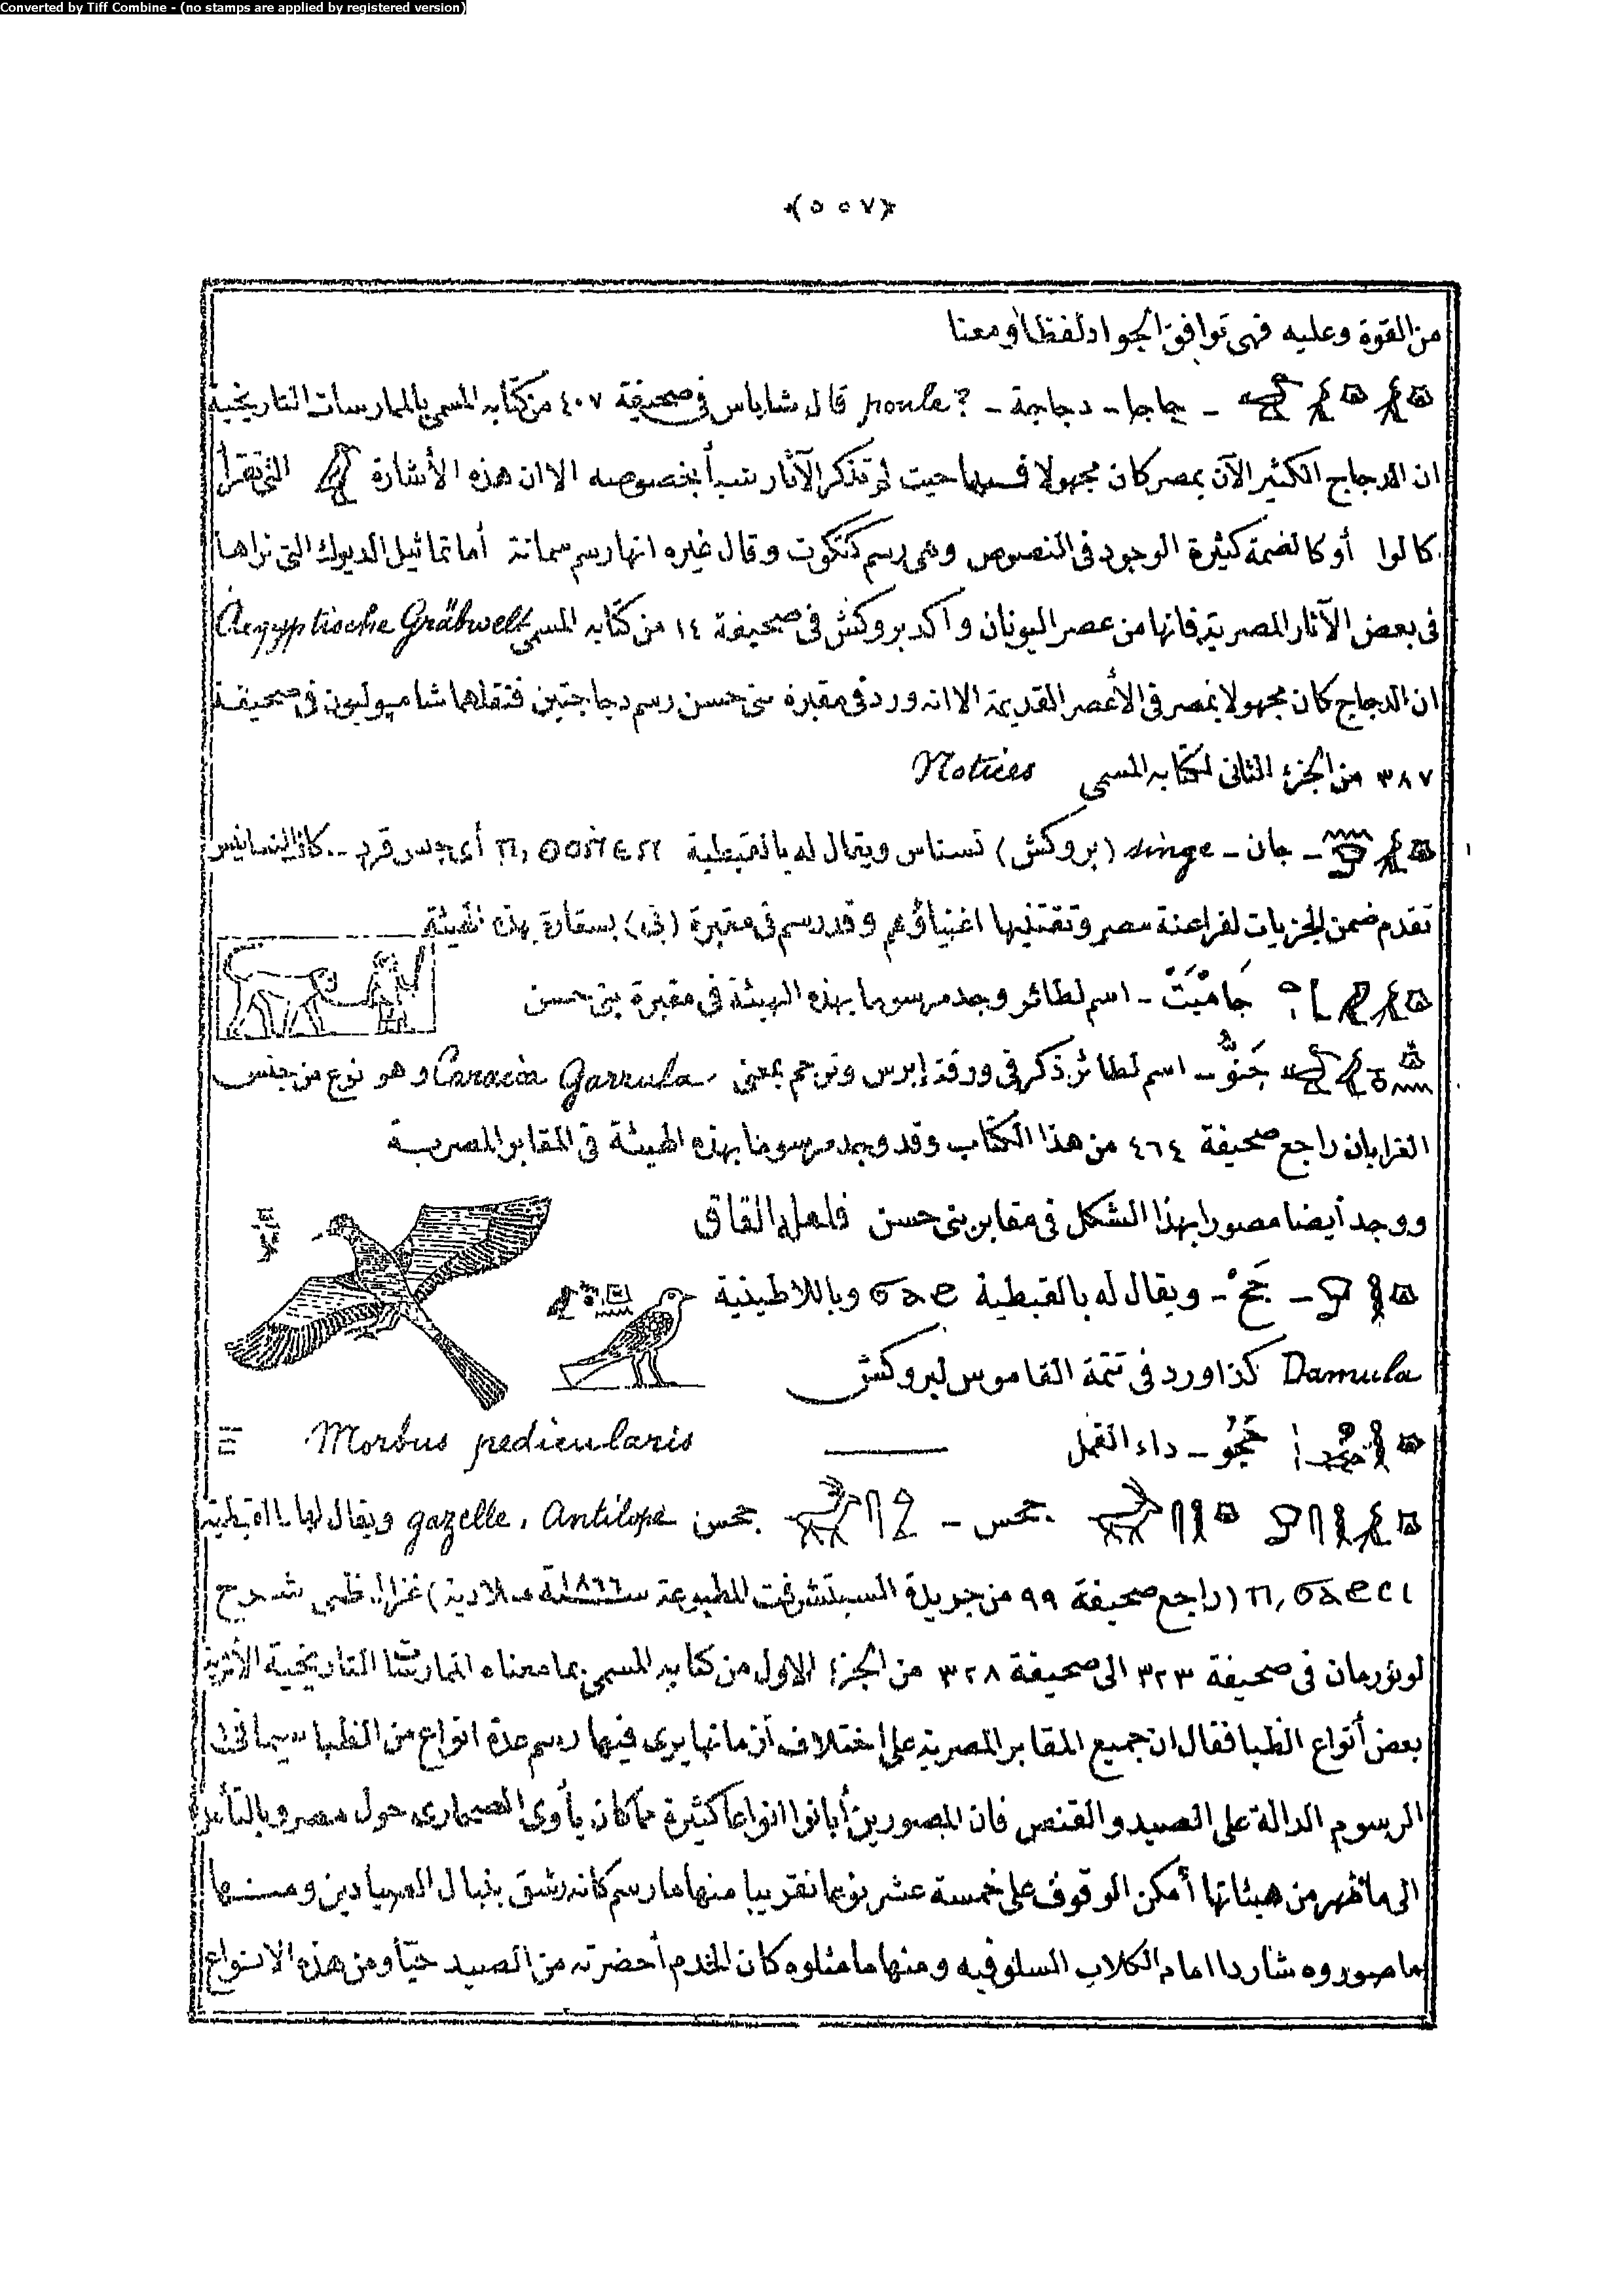 Converted by Tiff Combine - (no stamps are applied by registered version)
﴿٥٥٧﴾
من القوة وعليه فهى توافق الجواد لفظا ومعنا
ـ جاجا ـ دجاجة ـ ?poule قال شاباس فى صحيفة ٤٠٧ من كتابه المسمى بالممارسات التاريخية
ان الدجاج الكثير الآن بمصر كان مجهولا فيها حيث لم تذكر الآثار شيأ بخصوصه الا ان هذه الأشارة التى تقرأ
كالوا أو كا لضمة كثيرة الوجود فى النصوص وهى رسم كتكوت وقال غيره انها رسم سمانة أما تماثيل الديوك التى نراها
فى بعض الآثار المصرية فانها من عصر اليونان وأكد بروكش فى صحيفة ١٤ من كتابه المسمى Aegyptische Gräbwelt
ان الدجاج كان مجهولا بمصر فى الأعصر القديمة الا انه ورد فى مقبرة بنى حسن رسم دجاجتين فنقلها شامبوليون فى صحيفة
٣٨٧ من الجزء الثانى لكتابه المسمى Notices
ـ جان ـ singe (بروكش) نسناس ويقال له بالقبطية أى جنس قرد ـ كانت النسانيس
تقدم ضمن الجزيات لفراعنة مصر وتقتنيها اغنياؤهم وقد رسم فى مقبرة (تى) بسقارة بهذه الهيئة
ـ اسم لطائر وجد مرسوما بهذه الهيئة فى مقبرة بنى حسن
جَنوُّ ـ اسم لطائر ذكر فى ورقة إبرس وترجم بمعنى Coracia Garrula وهو نوع من جنس
الغرابان راجع صحيفة ٤٦٤ من هذا الكتاب وقد وجد مرسوما بهذه الهيئة فى المقابر المصرية
ووجد أيضا مصورا بهذا الشكل فى مقابر بنى حسن فلعله القاق
ـ جَحْ ـ ويقال له بالقبطية ϭⲁϩⲥ وباللاطينية
Damula كذا ورد فى تتمة القاموس لبروكش
ـ داء القمل Morbus pedicularis
ـ جحس ـ جحس gazelle, Antilope ويقال لها بالقبطية
(راجع صحيفة ٩٩ من جريدة السيتشرفت المطبوعة سنة ١٨٦٦ ميلادية) غزال ظبى شرح
لونورمان فى صحيفة ٣٢٣ الى صحيفة ٣٢٨ من الجزء الاول من كتابه المسمى بما معناه التاريخية الأثرية
بعض أنواع الظبا فقال ان جميع المقابر المصرية على اختلاف أزمانها يرى فيها رسم عدة انواع من الظبا سيما فى
الرسوم الدالة على الصيد والقنص فان المصورين أبانوا انواعا كثيرة مما كان يأوى الصحارى حول مصر وبالتأمل
الى ما ظهر من هيئاتها أمكن الوقوف على خمسة عشر نوعا تقريبا منها ما رسم كانه رشق بنبال الصيادين ومنها
ما صوروه شاردا امام الكلاب السلوقيه ومنها ما مثلوه كان الخدم أحضرته من الصيد حيًّا ومن هذه الانواع